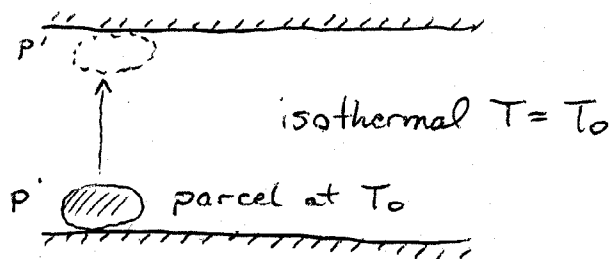 p'
isothermal T = T₀
p
parcel at T₀